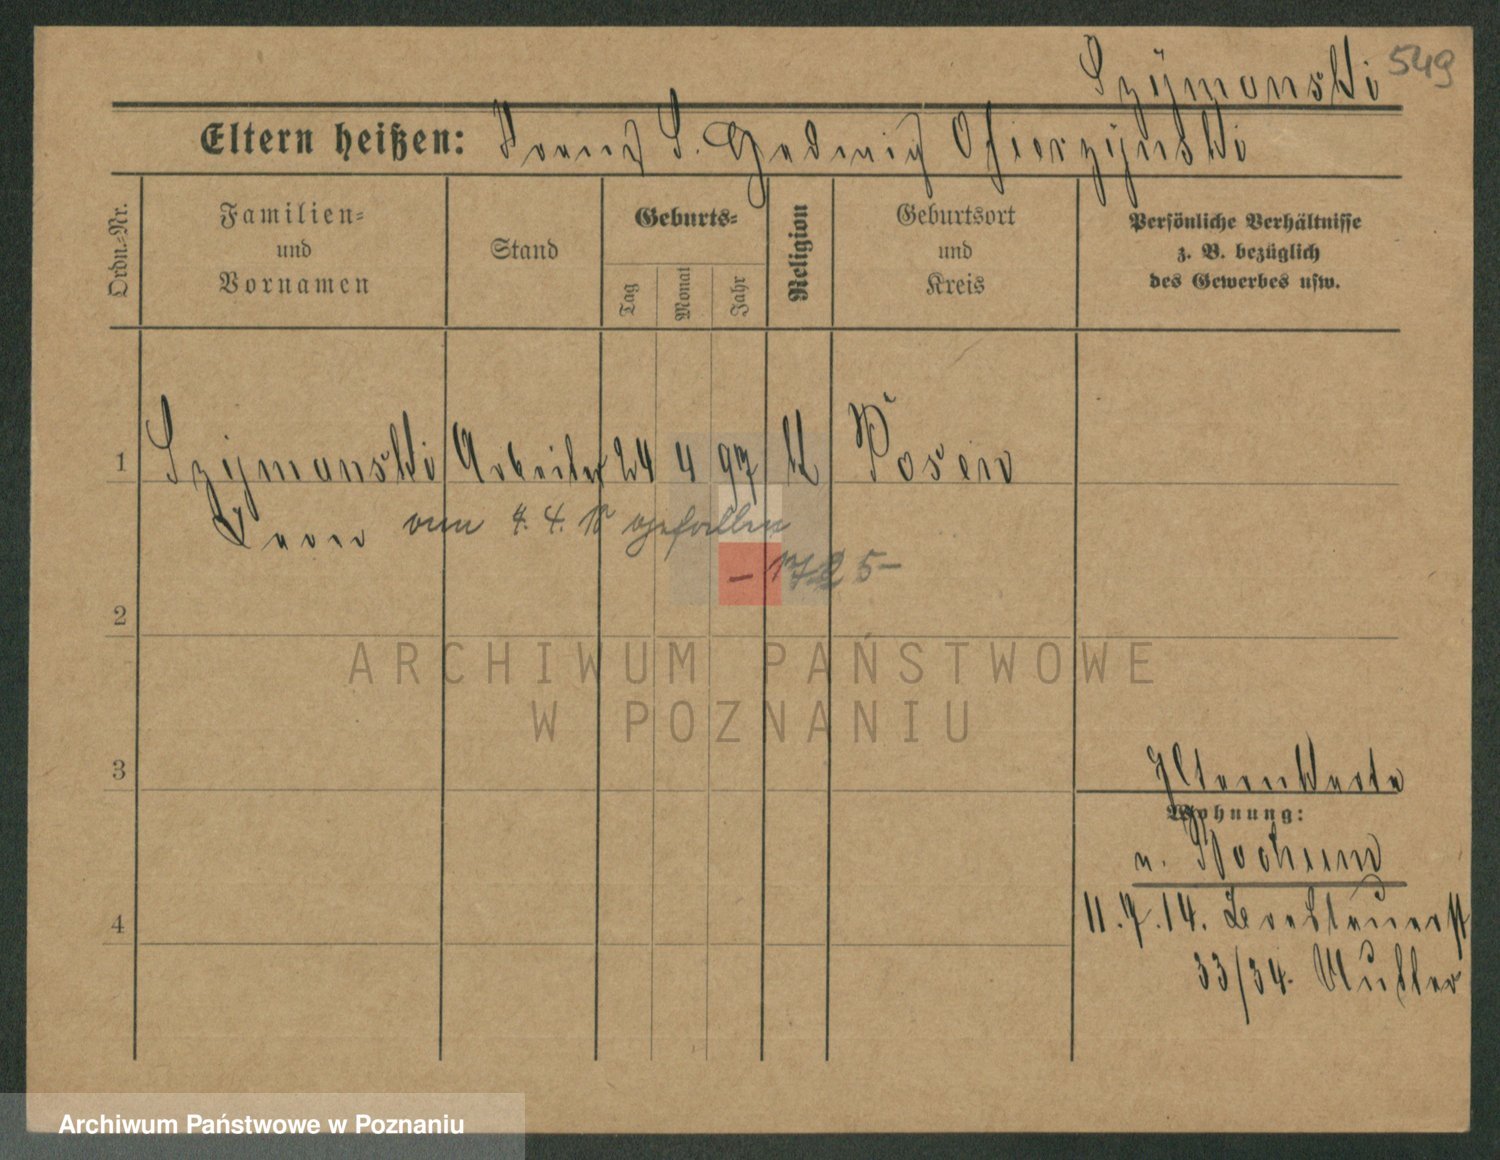 Szÿmanski 549
Eltern heißen: Franz S. Hedwig Ofierzÿnski
Ordn.=Nr.
Familien=
und
Vornamen
Stand
Geburts=
Tag
Monat
Jahr
Religion
Geburtsort
und
Kreis
Persönliche Verhältnisse
z. B. bezüglich
des Gewerbes usw.
1 Szÿmanski Arbeiter 24 4 97 k Posen
Leon am 4. 4. 18 gefallen
-1725-
2
ARCHIWUM PAŃSTWOWE
W POZNANIU
3
Elternkarte
Wohnung:
n. Bochum
4
11.7.14.
33/34. Mutter
Archiwum Państwowe w Poznaniu